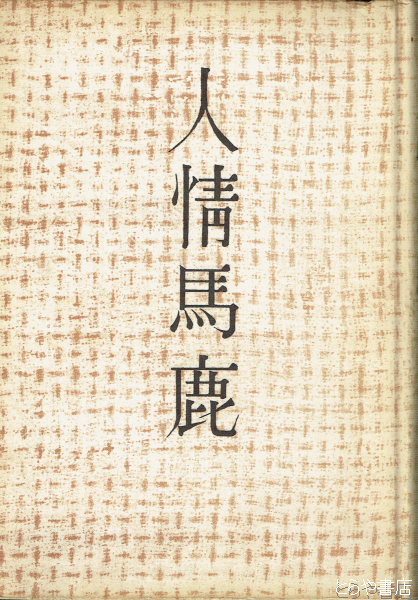 人情馬鹿
とらや書店